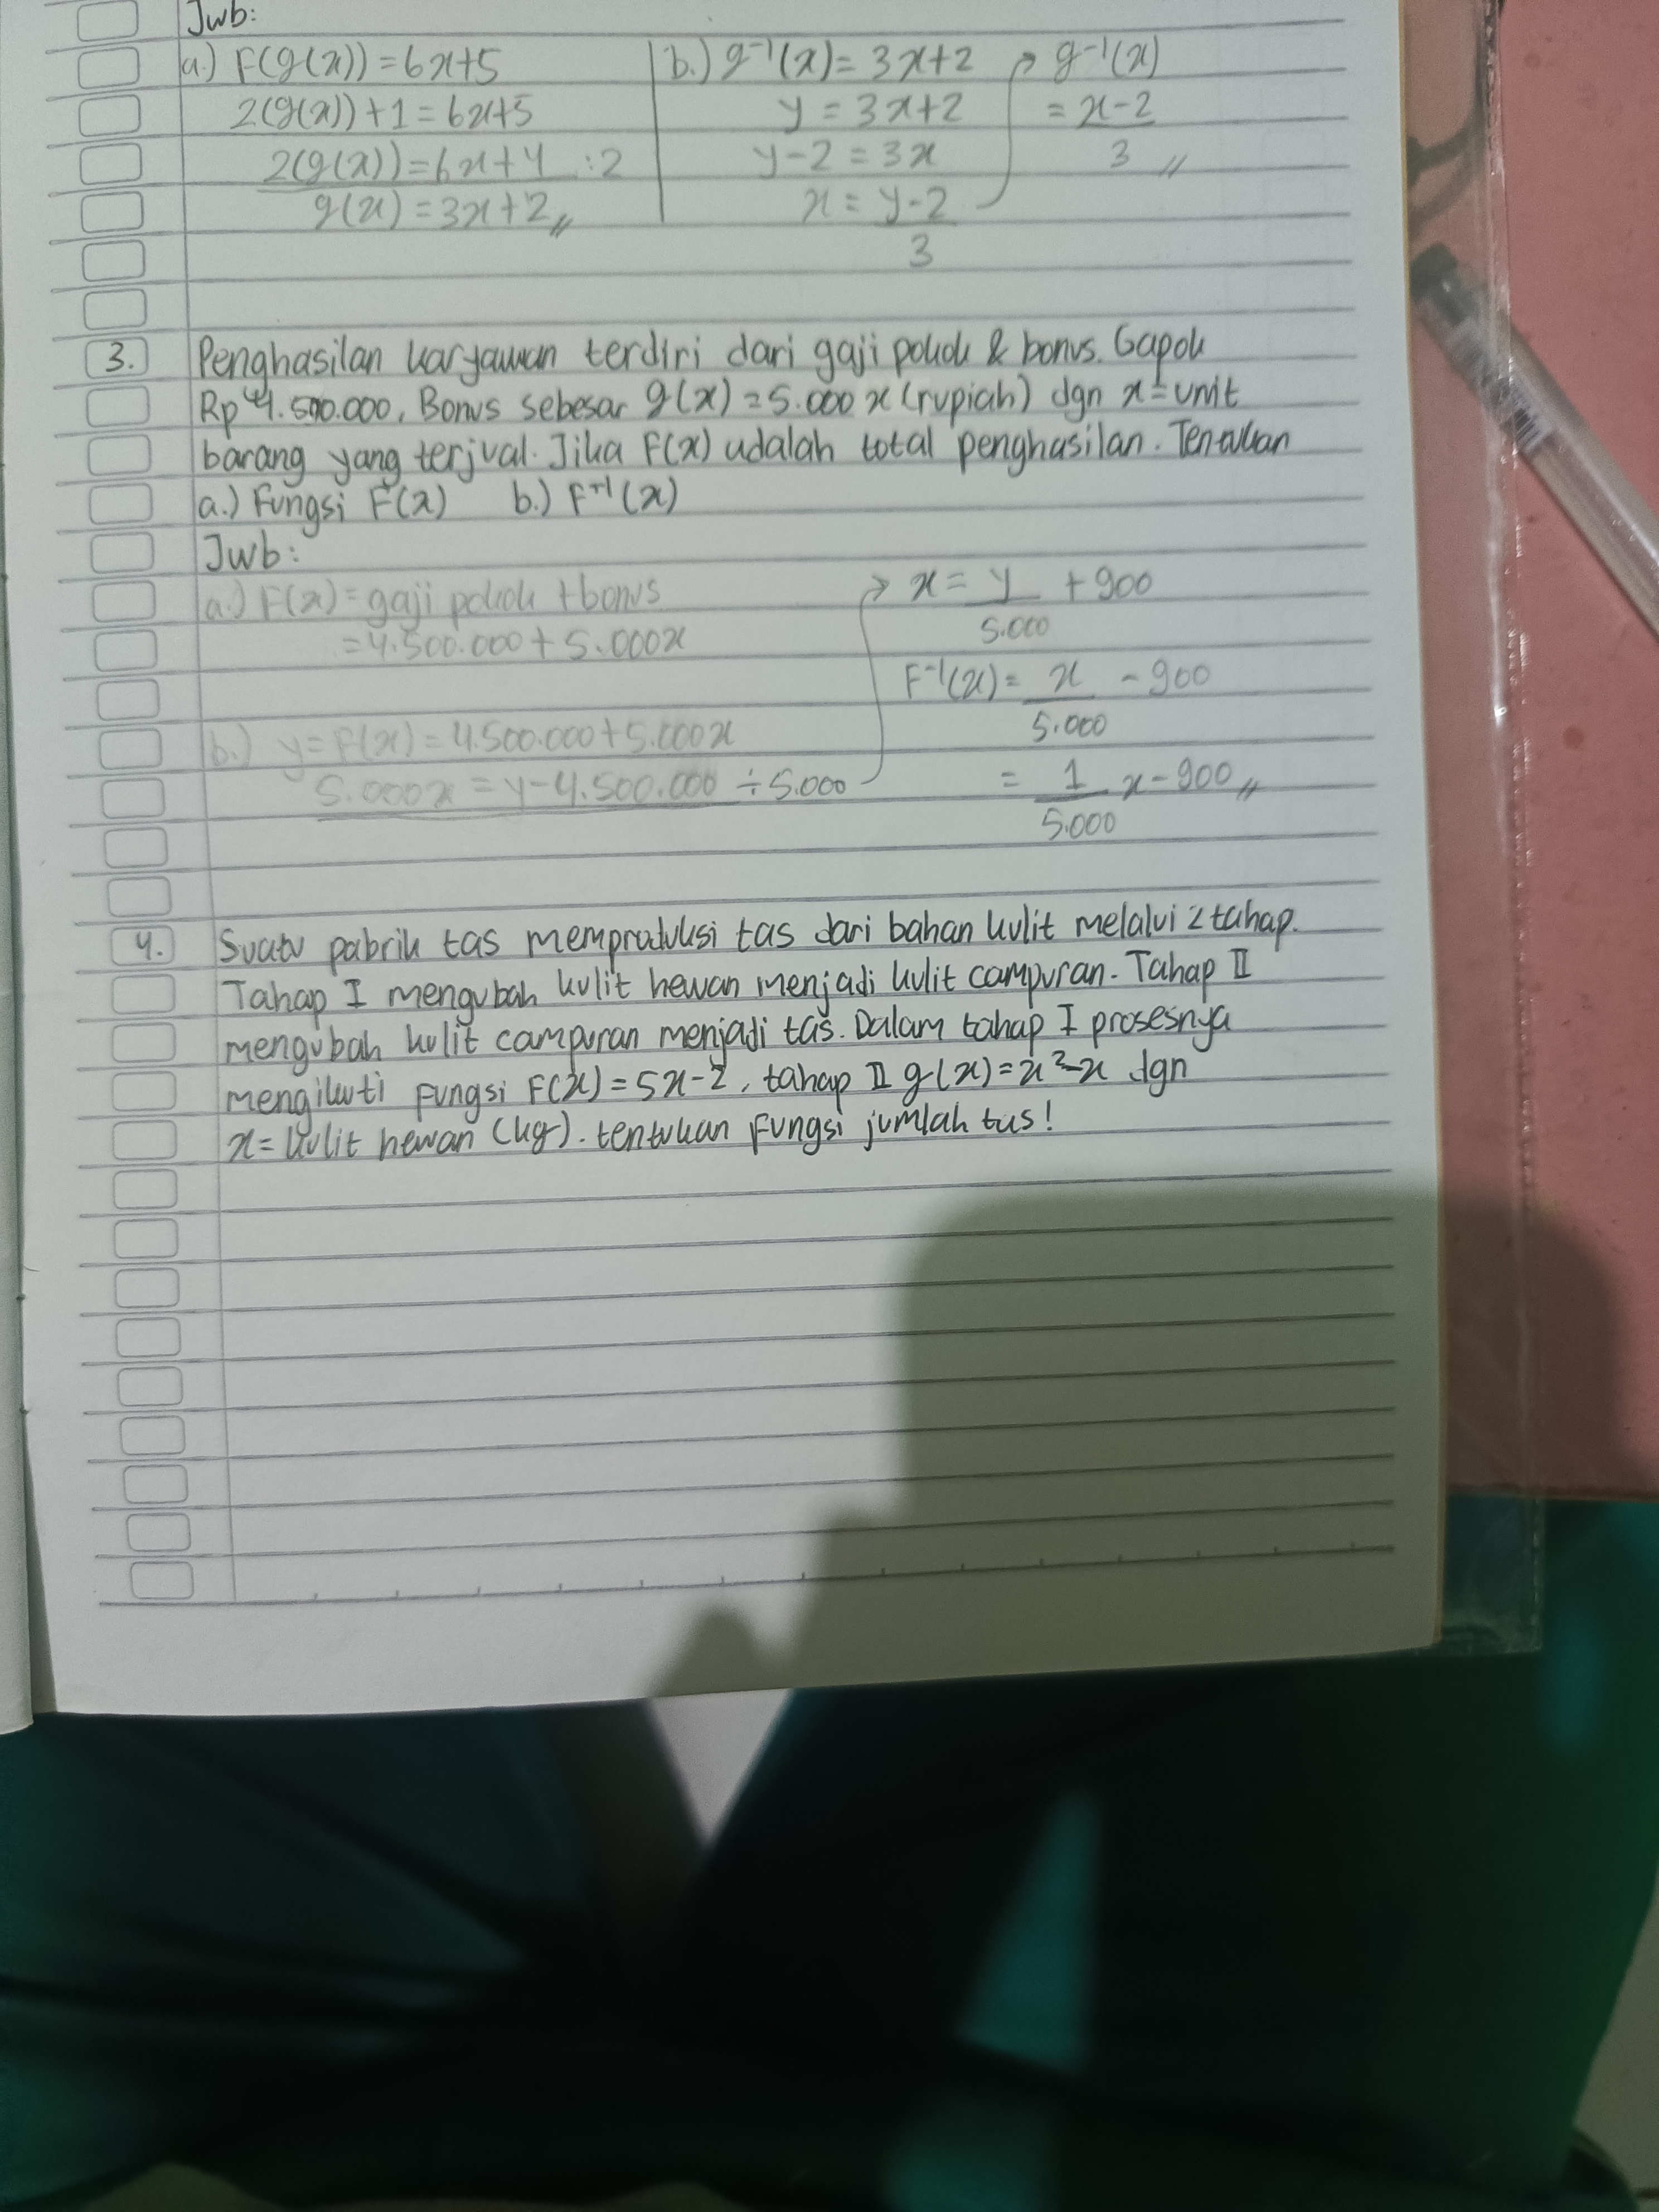 Jwb:
a.) F(g(x)) = 6x+5
2(g(x)) + 1 = 6x+5
2(g(x)) = 6x+4 :2
g(x) = 3x+2 //
b.) g⁻¹(x) = 3x+2
y = 3x+2
y-2 = 3x
x = y-2
3
g⁻¹(x)
= x-2
3 //
3. Penghasilan karyawan terdiri dari gaji pokok & bonus. Gapok
Rp 4.500.000, Bonus sebesar g(x) = 5.000 x (rupiah) dgn x = unit
barang yang terjual. Jika F(x) adalah total penghasilan. Tentukan
a.) Fungsi F(x) b.) F⁻¹(x)
Jwb:
a.) F(x) = gaji pokok + bonus
= 4.500.000 + 5.000x
b.) y = F(x) = 4.500.000 + 5.000x
5.000x = y - 4.500.000 ÷ 5.000
x = y + 900
5.000
F⁻¹(x) = x - 900
5.000
= 1 x - 900 //
5.000
4. Suatu pabrik tas memproduksi tas dari bahan kulit melalui 2 tahap.
Tahap I mengubah kulit hewan menjadi kulit campuran. Tahap II
mengubah kulit campuran menjadi tas. Dalam tahap I prosesnya
mengikuti fungsi F(x) = 5x-2, tahap II g(x) = x²-x dgn
x = kulit hewan (kg). tentukan fungsi jumlah tas!